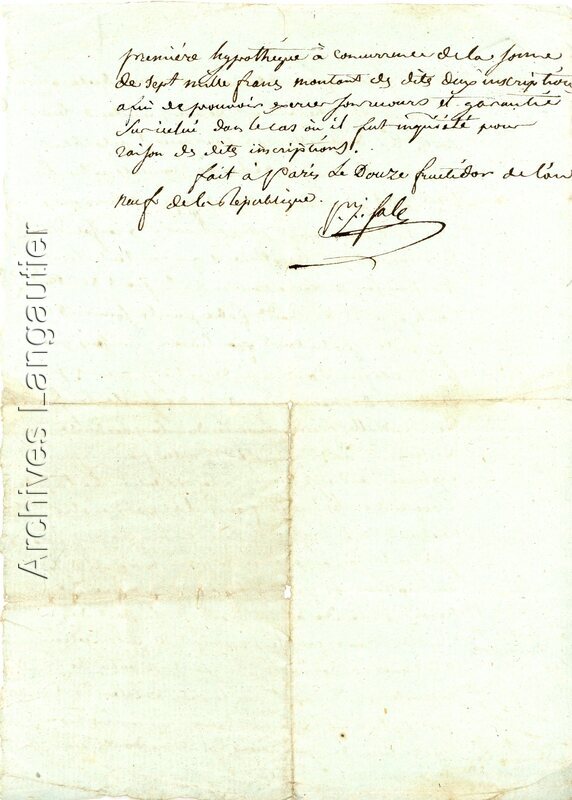 première hypothéque à concurrence de la somme
de sept mille francs montant des dits deux inscriptions
afin de pouvoir exercer son recours et garantie
sur icelui dans le cas où il fut inquiété pour
raison des dites inscriptions.
fait à Paris Le Douze fructidor de l'an
neuf de la Republique.
Archives Langautier